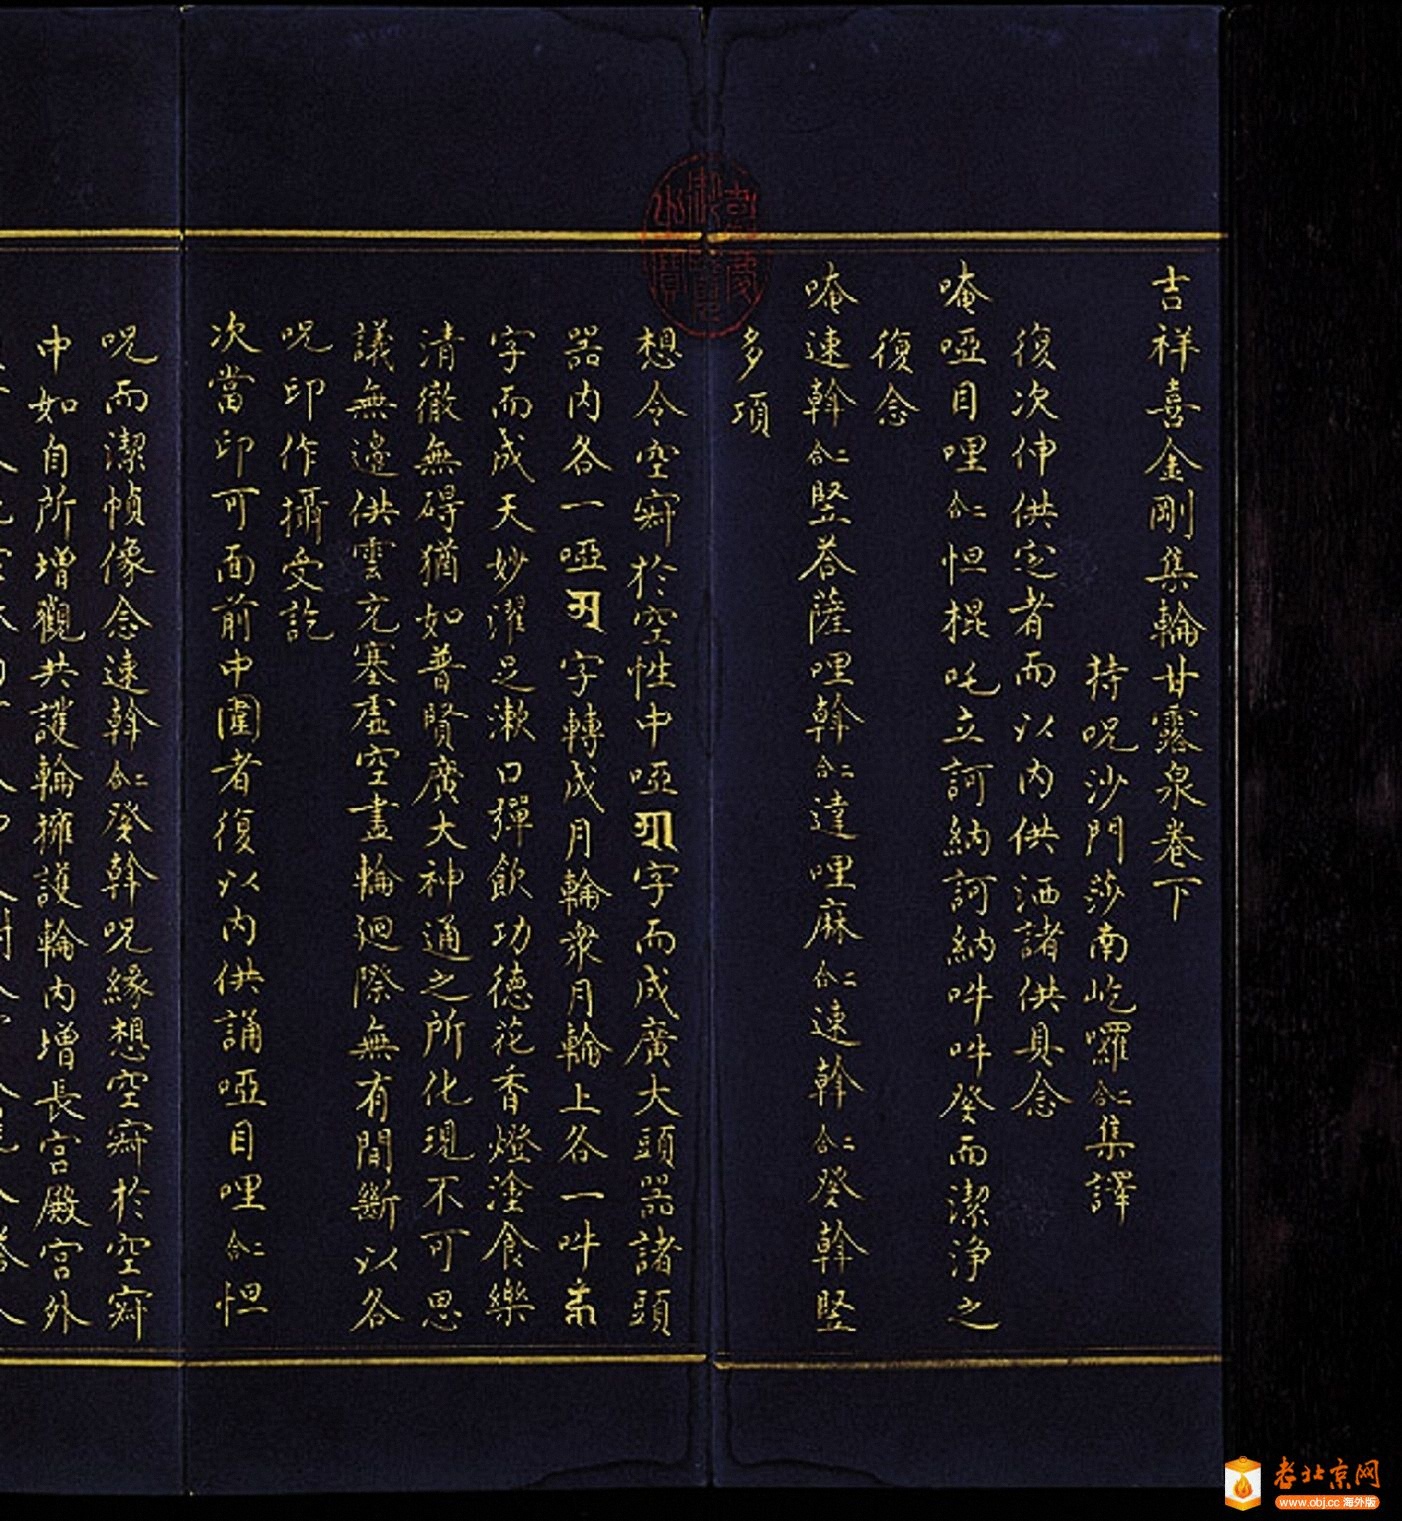 吉祥喜金剛集輪甘露泉卷下
持呪沙門莎南屹囉二合集譯
復次伸供定者而以內供洒諸供具念
唵啞目哩二合怛棍吒立訶納訶納吽吽癹而潔淨之
復念
唵速斡二合竪荅薩哩斡二合達哩麻二合速斡二合癹斡竪
多項
想令空寂於空性中啞ཨཱཿ字而成廣大頭器諸頭
器內各一啞字轉成月輪衆月輪上各一吽
字而成天妙濯足漱口彈飲功德花香燈塗食樂
清徹無碍猶如普賢廣大神通之所化現不可思
議無邊供雲充塞虛空盡輪迴際無有間斷以各
呪印作攝受訖
次當印可面前中圍者復以內供誦啞目哩二合怛
呪而潔幀像念速斡二合癹斡呪緣想空寂於空寂
中如自所增觀共護輪擁護輪內增長宮殿宮外
老北京网
www.obj.cc 海外版